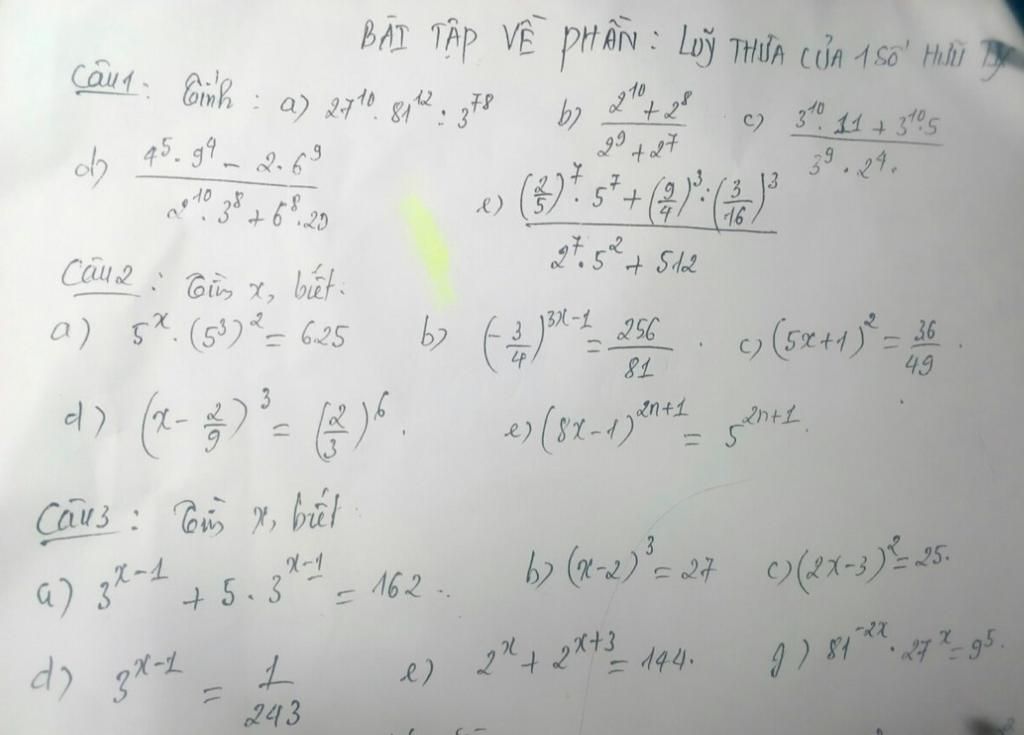 BÀI TẬP VỀ PHẦN: LUỸ THỪA CỦA 1 SỐ HỮU TỶ
Câu 1: Tính: a) 27^10 · 81^12 : 3^78 b) (2^10 + 2^8)/(2^9 + 2^7) c) (3^10 · 11 + 3^10 · 5)/(3^9 · 2^4)
d) (4^5 · 9^4 - 2 · 6^9)/(2^10 · 3^8 + 6^8 · 20) e) ((2/5)^7 · 5^7 + (9/4)^3 : (3/16)^3)/(2^7 · 5^2 + 512)
Câu 2: Tìm x, biết:
a) 5^x · (5^3)^2 = 625 b) (-3/4)^(3x-1) = 256/81 · c) (5x+1)^2 = 36/49 .
d) (x - 2/9)^3 = (2/3)^6 . e) (8x-1)^(2n+1) = 5^(2n+1) .
Câu 3: Tìm x, biết
a) 3^(x-1) + 5 · 3^(x-1) = 162 .. b) (x-2)^3 = 27 c) (2x-3)^2 = 25.
d) 3^(x-1) = 1/243 e) 2^x + 2^(x+3) = 144. g) 81^(-2x) · 27^x = 9^5.